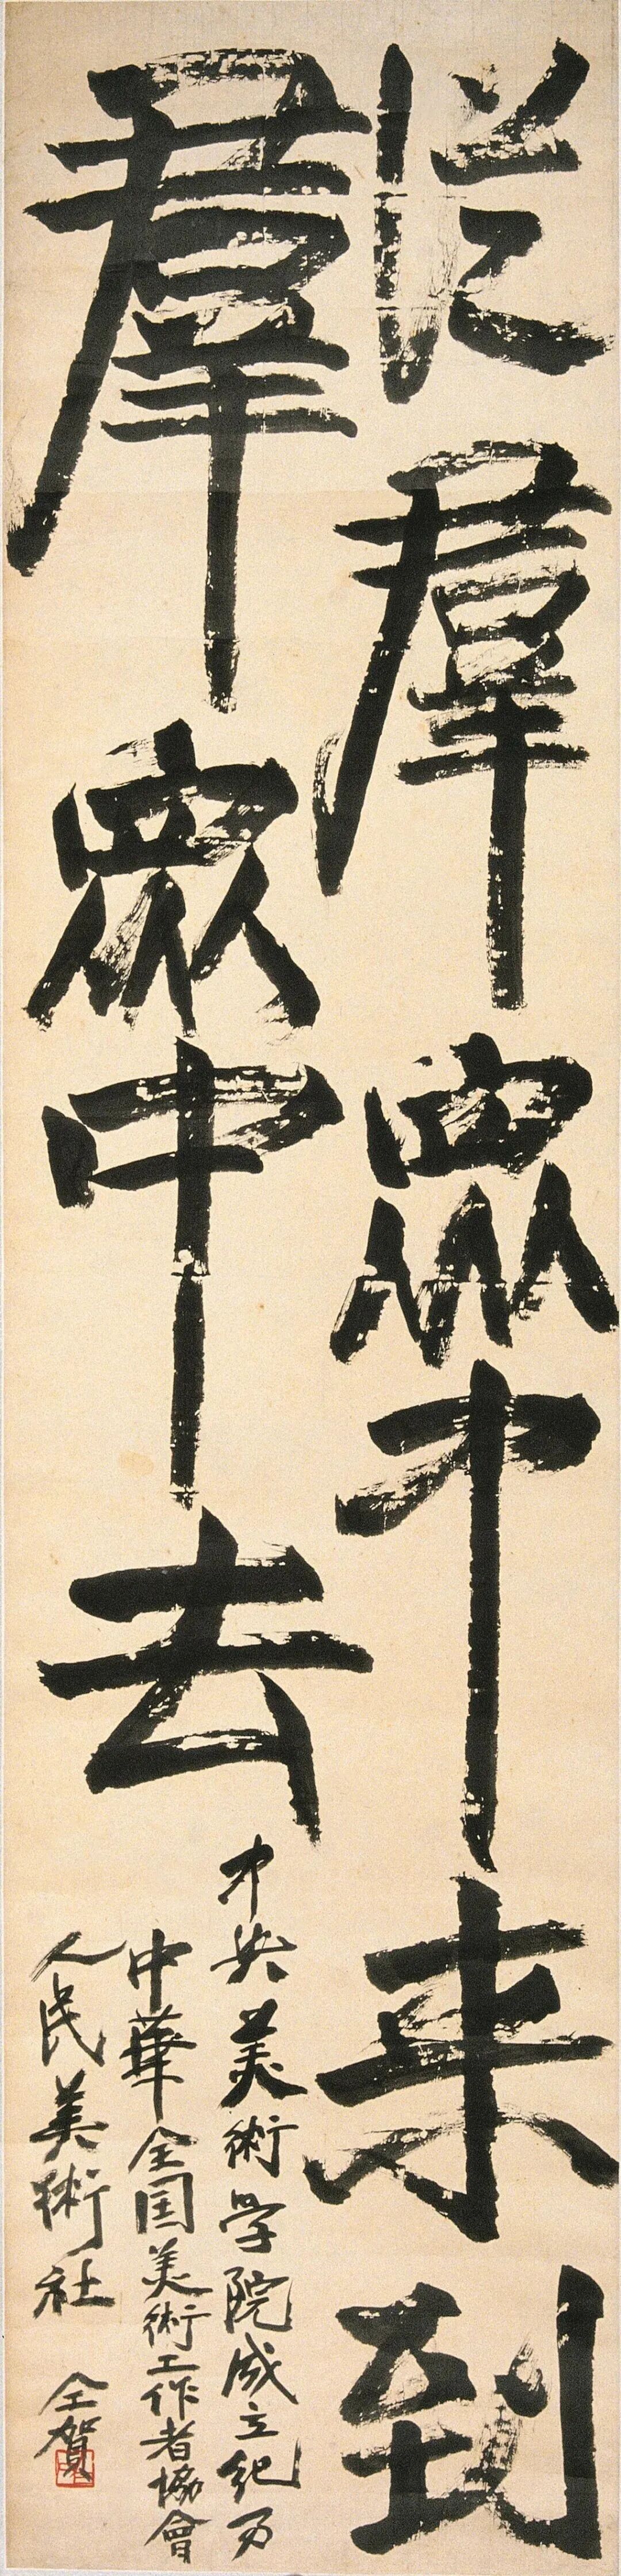 從羣眾中来到
羣眾中去
中央美術学院成立紀
中華全囯美術工作者協會
人民美術社 仝賀